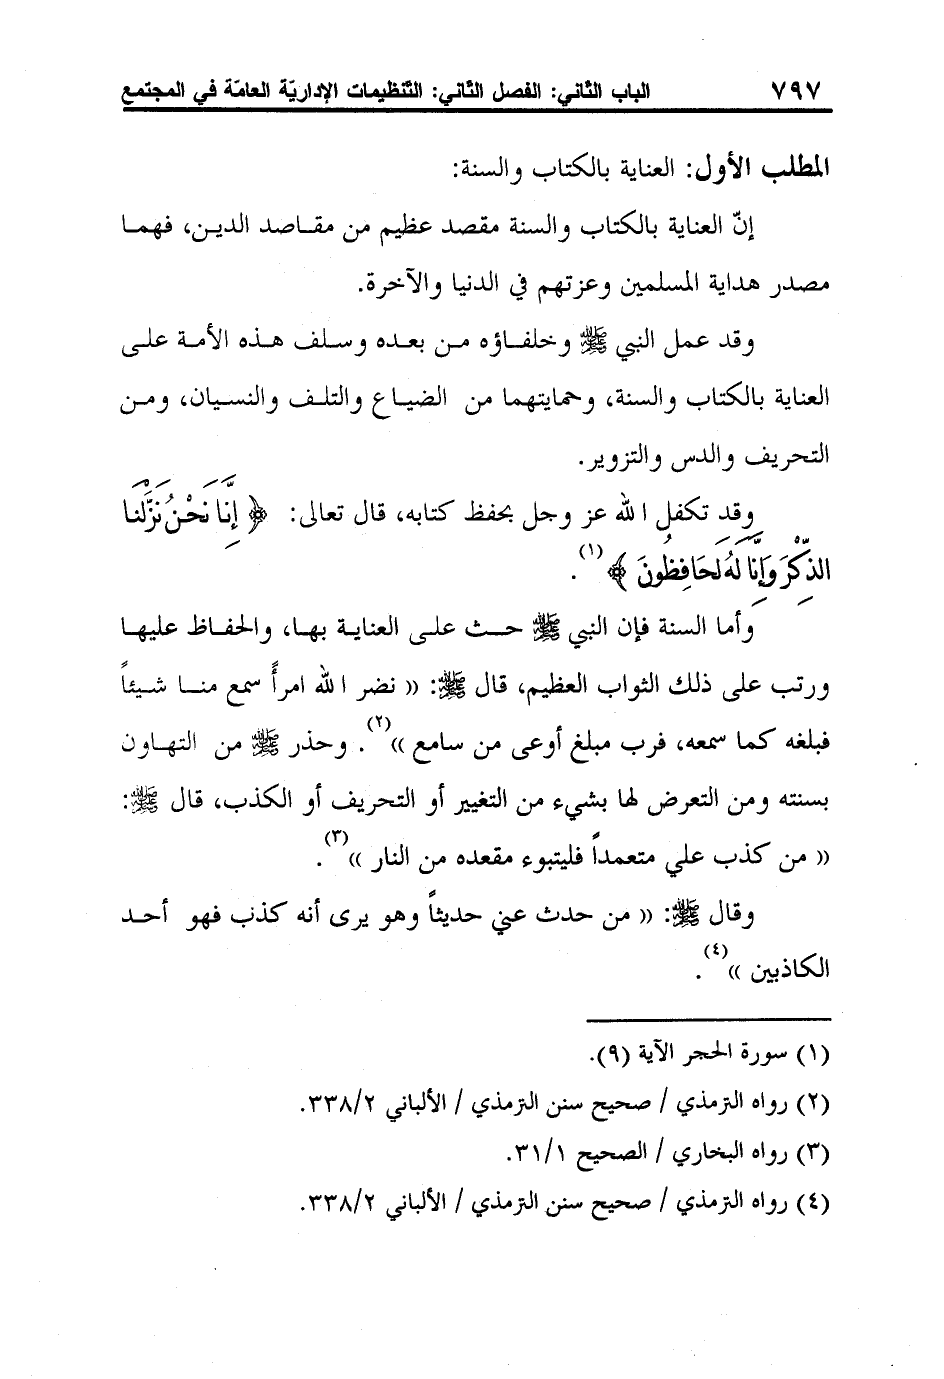 ٧٩٧ الباب الثاني: الفصل الثاني: التّنظيمات الإداريّة العامّة في المجتمع
المطلب الأول: العناية بالكتاب والسنة:
إنّ العناية بالكتاب والسنة مقصد عظيم من مقاصد الدين، فهما
مصدر هداية المسلمين وعزتهم في الدنيا والآخرة.
وقد عمل النبي ﷺ وخلفاؤه من بعده وسلف هذه الأمة على
العناية بالكتاب والسنة، وحمايتهما من الضياع والتلف والنسيان، ومن
التحريف والدس والتزوير.
وقد تكفل الله عز وجل بحفظ كتابه، قال تعالى: ﴿ إِنَّا نَحْنُ نَزَّلْنَا
الذِّكْرَ وَإِنَّا لَهُ لَحَافِظُونَ ﴾(١).
وأما السنة فإن النبي ﷺ حث على العناية بها، والحفاظ عليها
ورتب على ذلك الثواب العظيم، قال ﷺ: « نضر الله امرأً سمع منا شيئاً
فبلغه كما سمعه، فرب مبلغ أوعى من سامع »(٢). وحذر ﷺ من التهاون
بسنته ومن التعرض لها بشيء من التغيير أو التحريف أو الكذب، قال ﷺ:
« من كذب علي متعمداً فليتبوء مقعده من النار »(٣).
وقال ﷺ: « من حدث عني حديثاً وهو يرى أنه كذب فهو أحد
الكاذبين »(٤).
(١) سورة الحجر الآية (٩).
(٢) رواه الترمذي / صحيح سنن الترمذي / الألباني ٣٣٨/٢.
(٣) رواه البخاري / الصحيح ٣١/١.
(٤) رواه الترمذي / صحيح سنن الترمذي / الألباني ٣٣٨/٢.